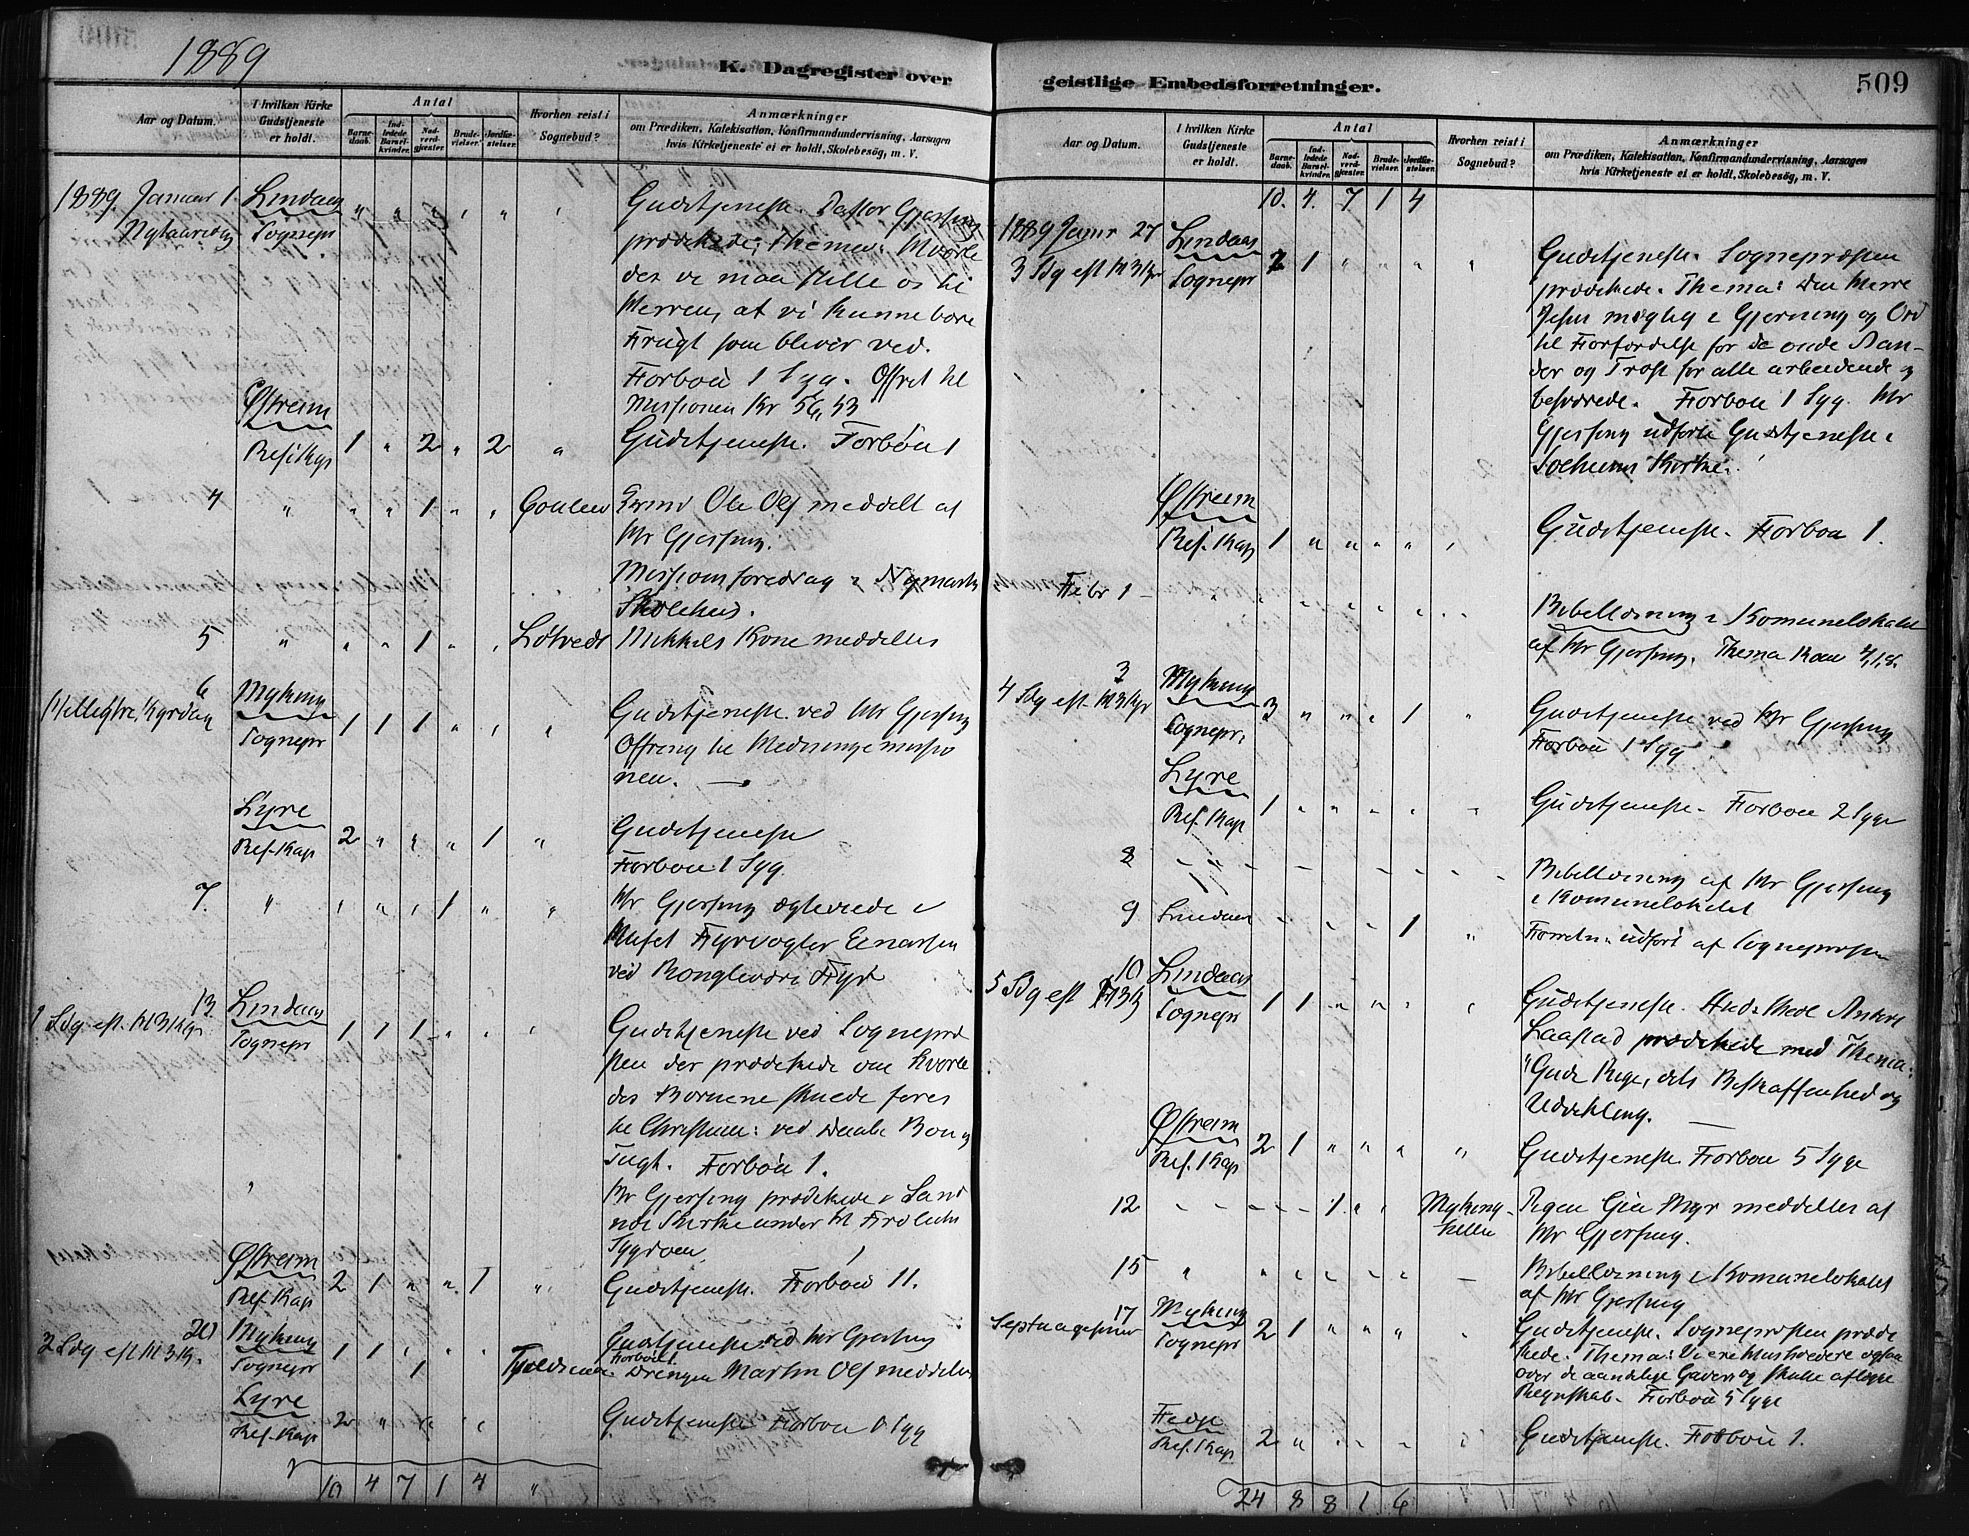 1889
K. Dagregister over
Aar og Datum.
I hvilken Kirke Gudstjeneste er holdt.
Antal
Barnedaab.
Indledede Barselkvinder.
Nadverdgjæster.
Brudevielser.
Jordfæstelser.
Hvorhen reist i Sognebud?
Anmærkninger
om Prædiken, Katekisation, Konfirmandundervisning, Aarsagen
hvis Kirketjeneste ei er holdt, Skolebesøg, m. V.
1889 Januar 1 Lindaas " " " " " Gudstjeneste. Pastor Gjersing
Nytaarsdag Sognepr prædikede; Thema: Hvorle
des vi maa stille os til
Herren, at vi kunne bære
Frugt som bliver ved.
Forbøn 1 Syg. Offret til
Missionen Kr 56,53
Østreim
Res. Kap 1 " 2 " 2 " Gudstjeneste. Forbøn 1
4 " " " 1 " " Ole Ols meddelt af
Hr Gjersing.
Missionsforedrag i Nymarks
Skolehus.
5 " " " 1 " " Løtvedt Mikkels Kone meddeltes
6 Myking
Helligtre Kgrdag Sognepr 1 1 1 " " " Gudstjeneste ved Hr Gjersing
Offring til Hedningemissio
nen.
Lyre
Res. Kap 2 " " " 1 " Gudstjeneste
Forbøn 1 Syg.
7. " " " " 1 " " Hr Gjersing ægteviede i
Huset Fyrvogter Einarsen
ved Fyr
13. Lindaas
1 Sdg eft. H 3 Kgr Sognepr 1 1 1 " " " Gudstjeneste ved Sognepræ
sten der prædikede om hvorle
des Børnene skulde føres
til Christum: ved Daab Bøn og
Tugt. Forbøn 1.
Hr Gjersing prædikede i Sand
nes Kirke under Hr
Sygdom
Østreim
Res. Kap 2 1 " " 1 " Gudstjeneste. Forbøn 11.
20 Myking
2 Sdg eft H 3 Kg. Sognepr 1 1 " " " Gudstjeneste ved Hr Gjersing
Forbøn 1.
1 Drengen Martin Ols meddeltes
Lyre
Res. Kap 2 " " " " Gudstjeneste Forbøn Syg
10 4 7 1 4 "
geistlige Embedsforretninger.
509
Aar og Datum.
I hvilken Kirke Gudstjeneste er holdt.
Antal
Barnedaab.
Indledede Barselkvinder.
Nadverdgjæster.
Brudevielser.
Jordfæstelser.
Hvorhen reist i Sognebud?
Anmærkninger
om Prædiken, Katekisation, Konfirmandundervisning, Aarsagen
hvis Kirketjeneste ei er holdt, Skolebesøg, m. V.
10. 4. 7 1 4
1889 Janr 27 Lindaas
3 Sdg eft H 3 Kgr Sognepr 2 1 " " " " Gudstjeneste. Sognepræsten
prædikede. Thema: Den Herre
Jesus mægtig i Gjerning og Ord
til Forfærdelse for de onde Aan-
der og Trøst for alle arbeidende og
besværede. Forbøn 1 Syg. Hr
Gjersing udførte Gudstjeneste i
Solheim Kirke.
Østreim
Res. Kap 1 " " " " " Gudstjeneste. Forbøn 1.
Febr 1 – " " " " " " Bibellæsning i Komunelokalet
af Hr Gjersing. Thema
3 Myking
4 Sdg eft. H 3 Kgr Sognepr. 3 " " " 1 " Gudstjeneste ved Hr Gjersing
Forbøn 1 Syg
Lyre
Res. Kap 1 " " " " " Gudstjeneste. Forbøn 2 Syge
8 Bibellæsning af Hr Gjersing
i Komunelokalet
9 Lindaas " " " " 1 " Forretn. udført af Sognepræsten
10 Lindaas
5 Sdg eft H 3 Kg Sognepr 1 1 " " " " Gudstjeneste.
Laastad prædikede med Thema:
"Guds Rige, dets Beskaffenhed og
Udvikling.
Østreim
Res. Kap 2 1 " " " " Gudstjeneste Forbøn 5 Syge
12 " " " 1 " " Myking- Pigen Myr meddeltes af
Hr Gjersing.
15 " " " " " " Bibellæsning i Komunelokalet
af Hr Gjersing
17 Myking
Septuagesima Sognepr 2 1 " " " " Gudstjeneste. Sognepræsten prædi
kede. Thema: Vi ere Husholdere ogsaa
over de aandelige Gaver og skulle aflegge
Regnskab. Forbøn 5 Syge
Fedje
Res. Kap. 2 " " " " " Gudstjeneste. Forbøn 1.
24 8 8 1 6